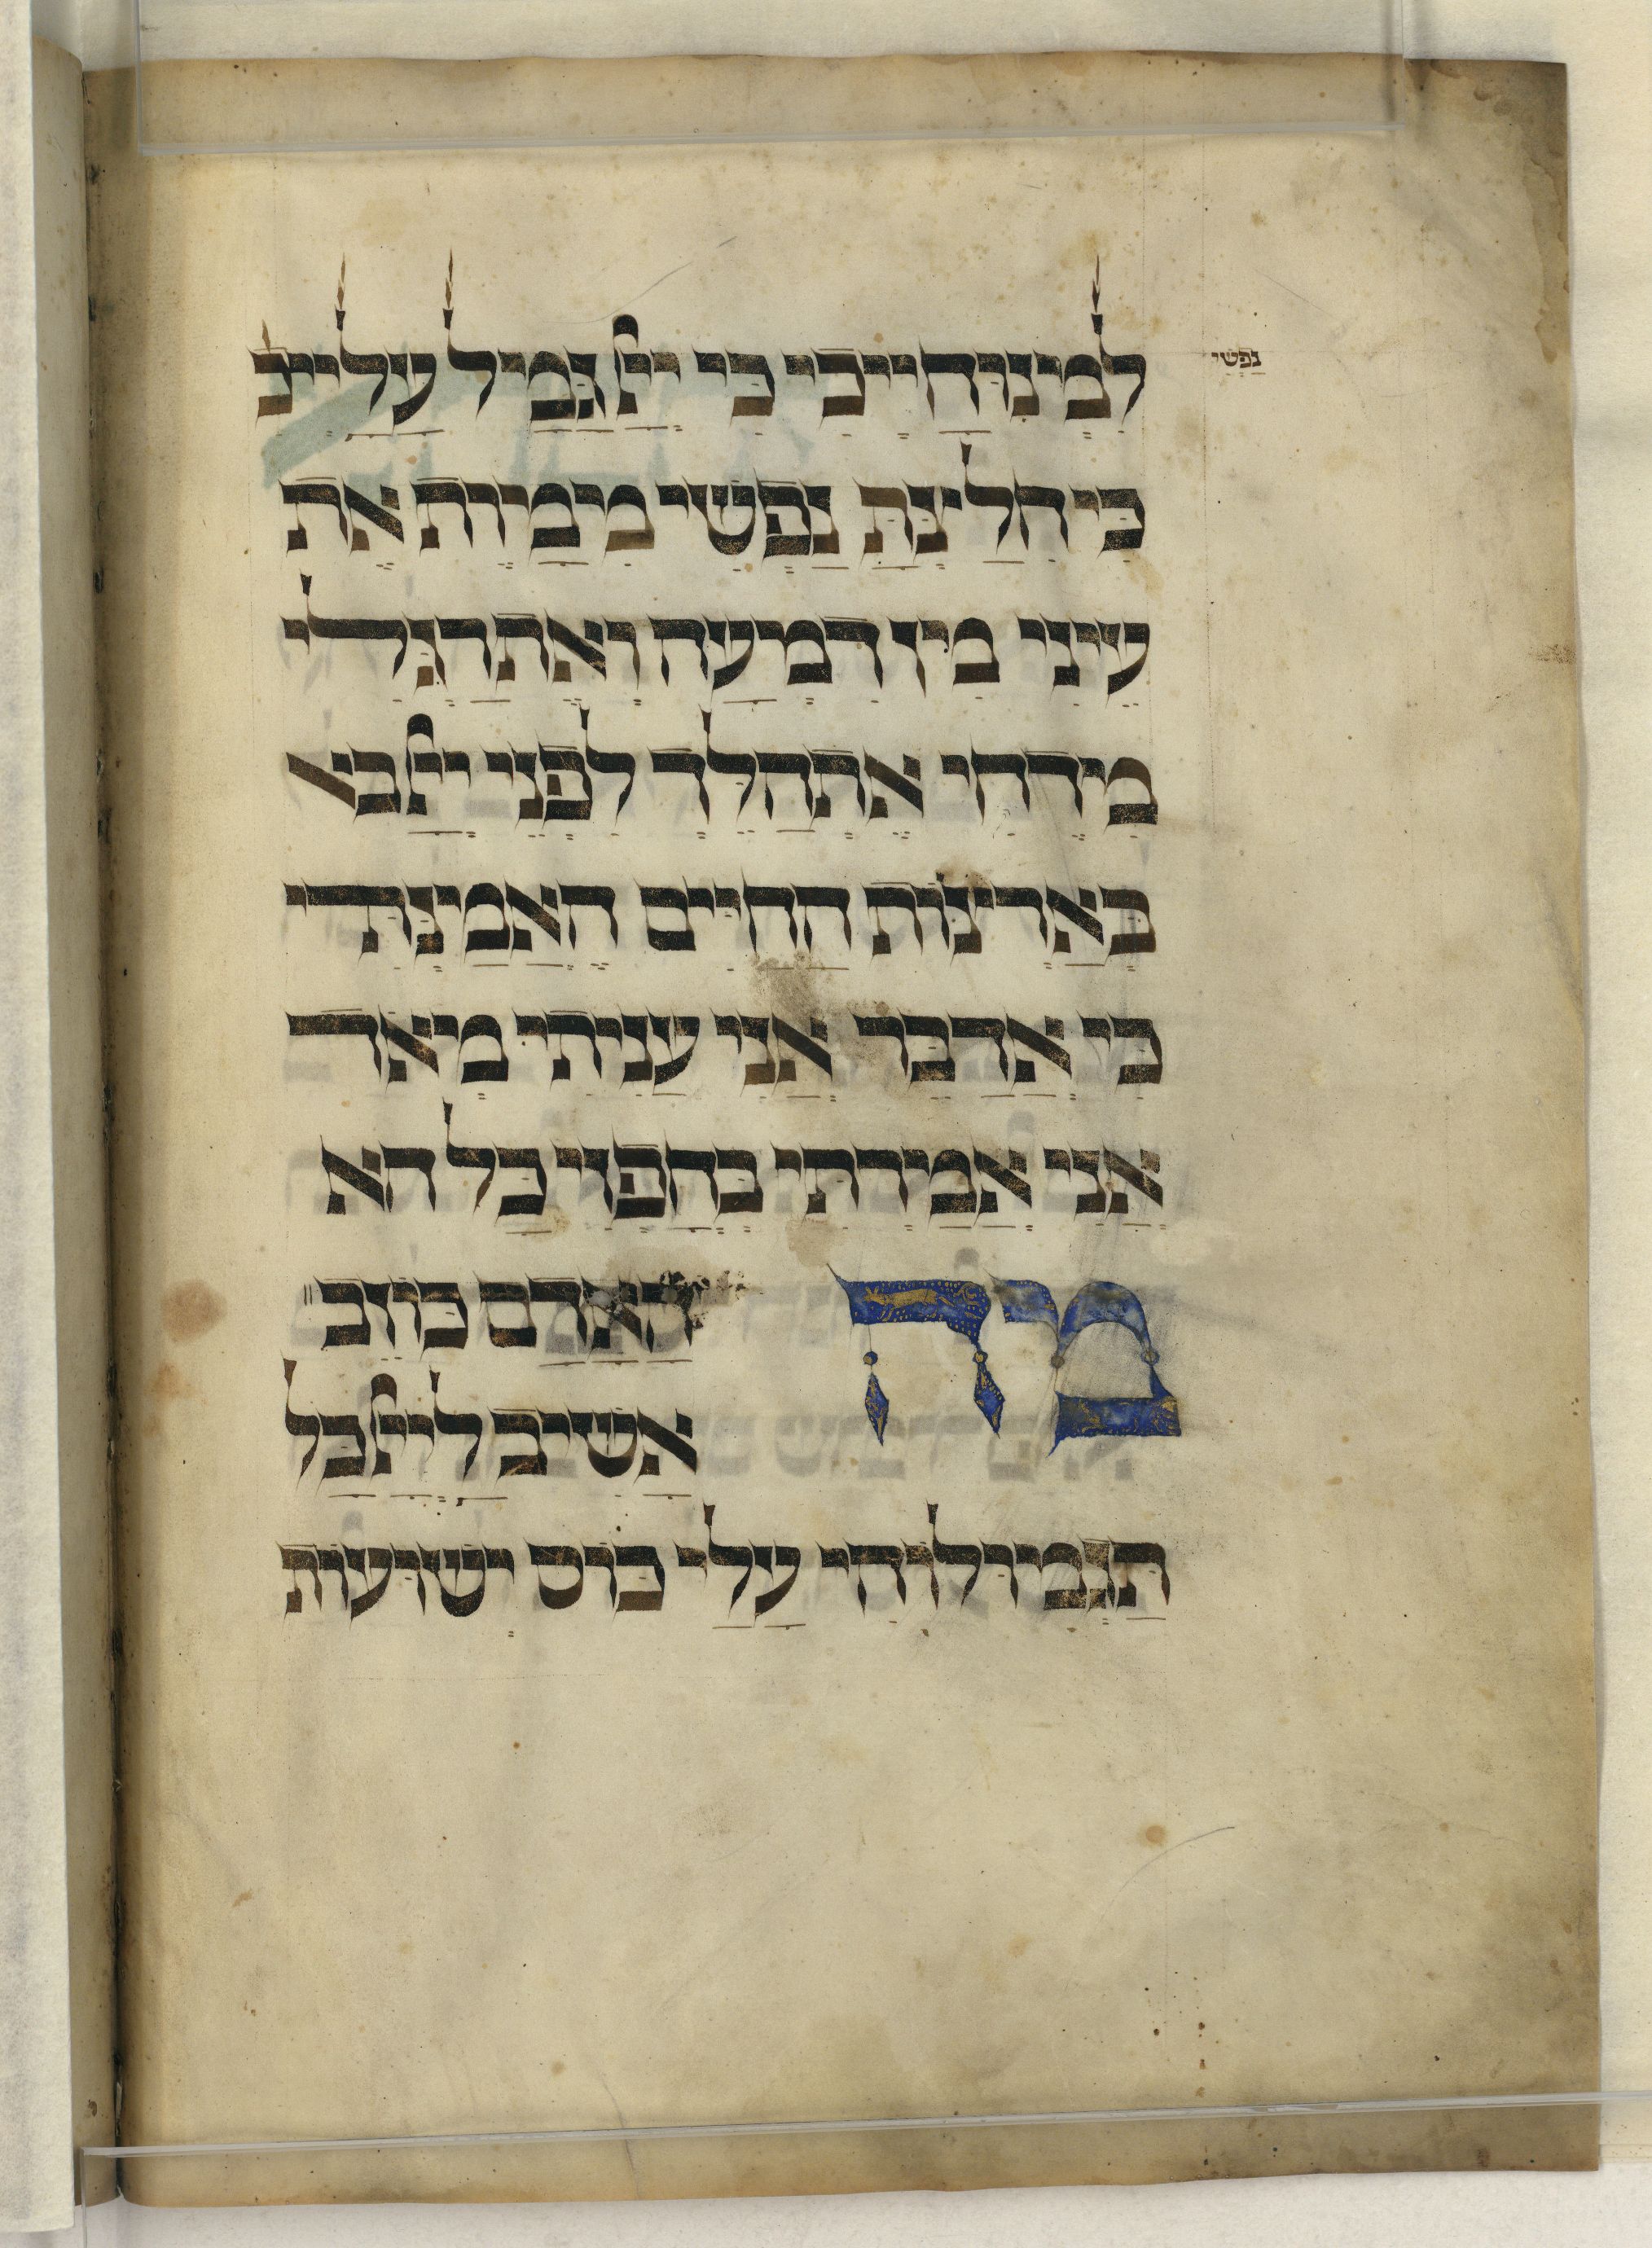 נפשי
למינוחייכי כי יי גמיל עלייכ
כי חלצת נפשי ממות את
עיני מן דמעה ואת רגלי
מידחי אתהלך לפני יי בא
בארצות החיים האמנתי
כי אדבר אני עניתי מאד
אני אמרתי בחפזי כל הא
האדם כוזב
מה
אשיב ליי כל
תגמולוהי עלי כוס ישועות